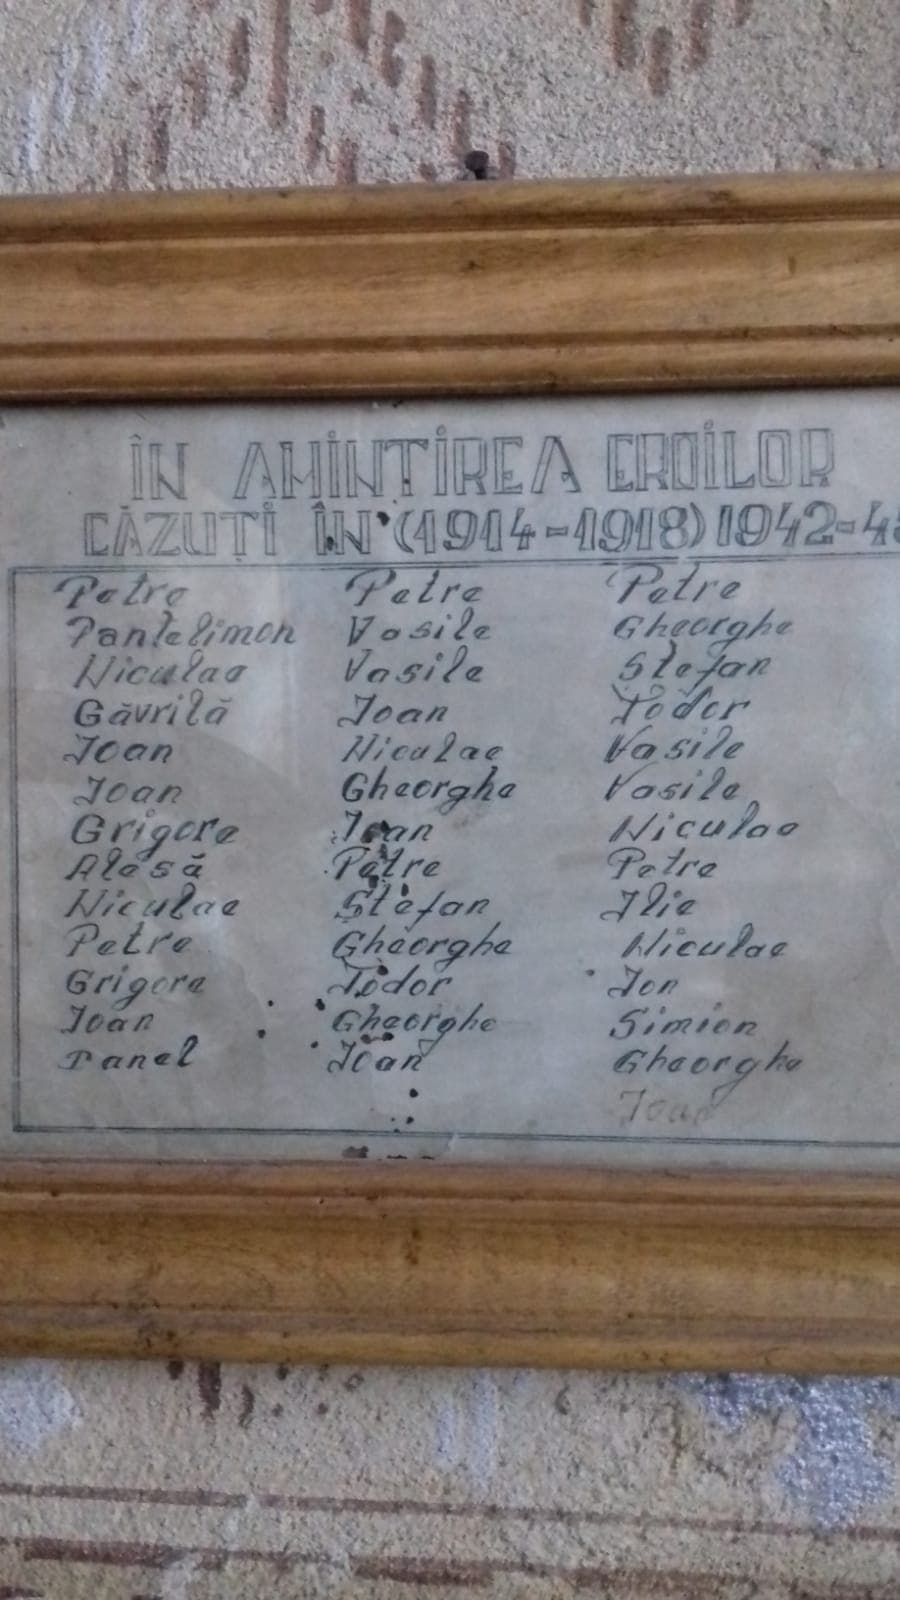 ÎN AMINTIREA EROILOR
CĂZUȚI ÎN (1914-1918) 1942-45
Petre Petre Petre
Pantelimon Vasile Gheorghe
Niculae Vasile Ștefan
Găvrilă Ioan Todor
Ioan Niculae Vasile
Ioan Gheorghe Vasile
Grigore Ioan Niculae
Alesă Petre Petre
Niculae Ștefan Ilie
Petre Gheorghe Niculae
Grigore Todor Ion
Ioan Gheorghe Simion
Panel Ioan Gheorghe
Ioan